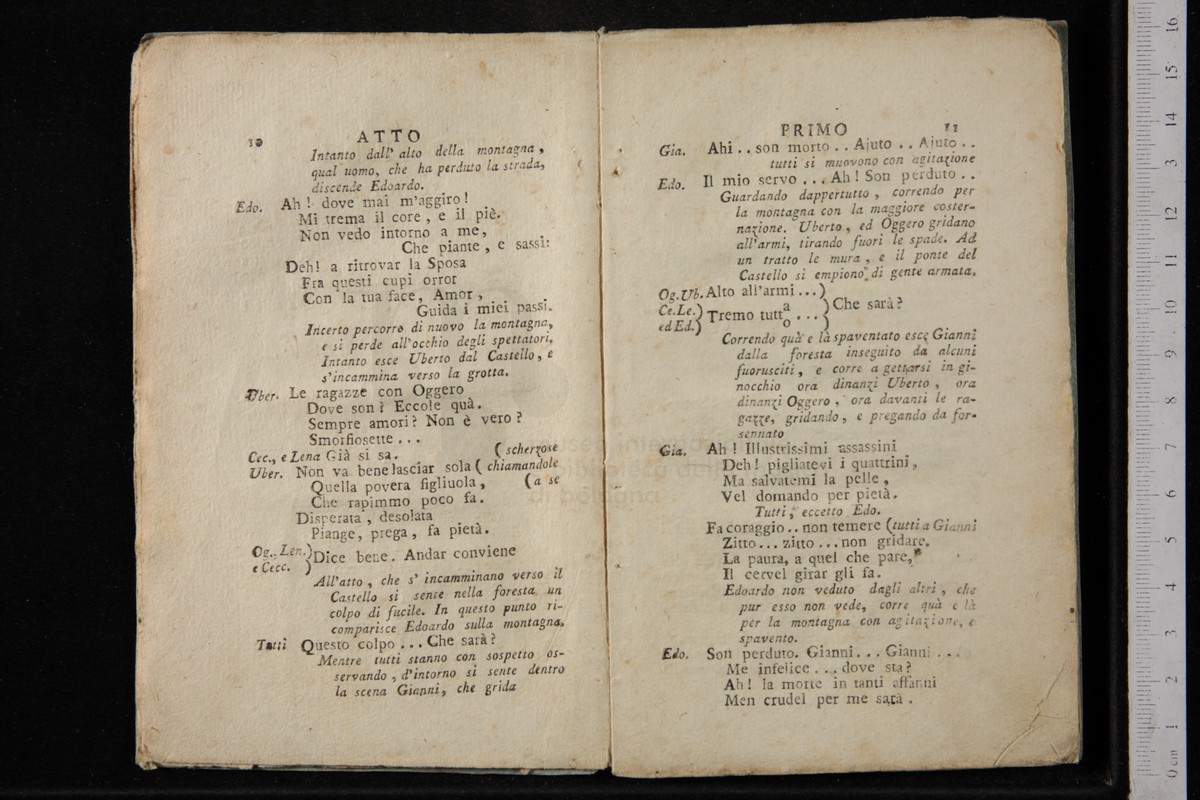 10 ATTO
Intanto dall' alto della montagna,
qual uomo, che ha perduto la strada,
discende Edoardo.
Edo. Ah! dove mai m'aggiro!
Mi trema il core, e il piè.
Non vedo intorno a me,
Che piante, e sassi:
Deh! a ritrovar la Sposa
Fra questi cupi orror
Con la tua face, Amor,
Guida i miei passi.
Incerto percorre di nuovo la montagna,
e si perde all'occhio degli spettatori,
Intanto esce Uberto dal Castello, e
s'incammina verso la grotta.
Uber. Le ragazze con Oggero
Dove son? Eccole quà.
Sempre amori? Non è vero?
Smorfiosette...
Cec., e Lena Già si sa. ( scherzose
Uber. Non va bene lasciar sola ( chiamandole
Quella povera figliuola, (a se
Che rapimmo poco fa.
Disperata, desolata
Piange, prega, fa pietà.
Og., Len.) Dice bene. Andar conviene
e Cecc. )
All'atto, che s' incamminano verso il
Castello si sente nella foresta un
colpo di fucile. In questo punto ri-
comparisce Edoardo sulla montagna.
Tutti Questo colpo... Che sarà?
Mentre tutti stanno con sospetto os-
servando, d'intorno si sente dentro
la scena Gianni, che grida
PRIMO 11
Gia. Ahi.. son morto.. Ajuto.. Ajuto..
tutti si muovono con agitazione
Edo. Il mio servo... Ah! Son perduto..
Guardando dappertutto, correndo per
la montagna con la maggiore coster-
nazione. Uberto, ed Oggero gridano
all'armi, tirando fuori le spade. Ad
un tratto le mura, e il ponte del
Castello si empiono di gente armata.
Og. Ub. Alto all'armi...)
Ce. Le.) Tremo tutt a/o ... ) Che sarà?
ed Ed.)
Correndo quà e là spaventato esce Gianni
dalla foresta inseguito da alcuni
fuorusciti, e corre a gettarsi in gi-
nocchio ora dinanzi Uberto, ora
dinanzi Oggero, ora davanti le ra-
gazze, gridando, e pregando da for-
sennato
Gia. Ah! Illustrissimi assassini
Deh! pigliatevi i quattrini,
Ma salvatemi la pelle,
Vel domando per pietà.
Tutti, eccetto Edo.
Fa coraggio.. non temere (tutti a Gianni
Zitto... zitto... non gridare.
La paura, a quel che pare,
Il cervel girar gli fa.
Edoardo non veduto dagli altri, che
pur esso non vede, corre quà e là
per la montagna con agitazione, e
spavento.
Edo. Son perduto. Gianni... Gianni...
Me infelice... dove sta?
Ah! la morte in tanti affanni
Men crudel per me sarà.